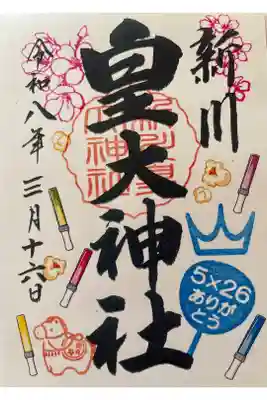 新川
皇大神社
令和八年 三月十六日
5×26
ありが
とう